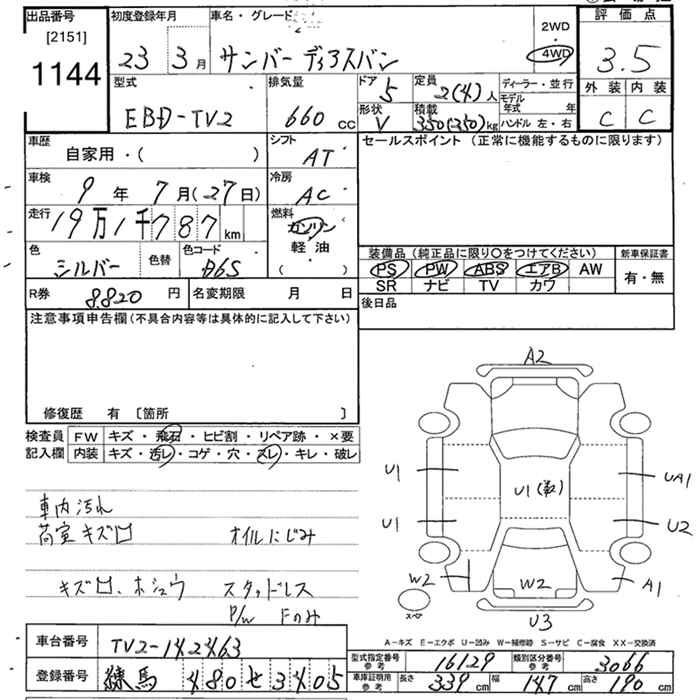 出品番号 初度登録年月 車名・グレード 2WD 評価点
[2151] 4WD
1144 23 3月 サンバーディアスバン 3.5
型式 排気量 ドア 定員 ディーラー・並行 外装 内装
EBD-TV2 660 cc 5 2(4)人 モデル年式 年 C C
形状 積載 ハンドル 左・右
V 350(250)kg
車歴 シフト セールスポイント (正常に機能するものに限ります)
自家用・( ) AT
車検 9年 7月(27日) 冷房 AC
走行 19万1千787km 燃料 ガソリン
軽油
( )
色 シルバー 色替 色コード D6S
装備品 (純正品に限り〇をつけてください) 新車保証書
PS PW ABS エアB AW 有・無
SR ナビ TV カワ
R券 8820円 名変期限 月 日 後日品
注意事項申告欄 (不具合内容等は具体的に記入して下さい)
修復歴 有 [箇所 ]
検査員 FW キズ・飛石・ヒビ割・リペア跡・×要
記入欄 内装 キズ・汚レ・コゲ・穴・スレ・キレ・破レ
A2
U1 U1 UA1
U1 U2
W2 W2 A1
スペア
U3
車内汚れ
荷室キズ凹 オイルにじみ
キズ凹、ホシュウ スタッドレス
P/W Fのみ
A-キズ E-エクボ U-凹み W-補修跡 S-サビ C-腐食 XX-交換済
車台番号 TV2-142463
型式指定番号 参考 16129 類別区分番号 参考 3066
登録番号 練馬 480 せ 3405
車庫証明用 参考 長さ 339cm 幅 147cm 高さ 190cm